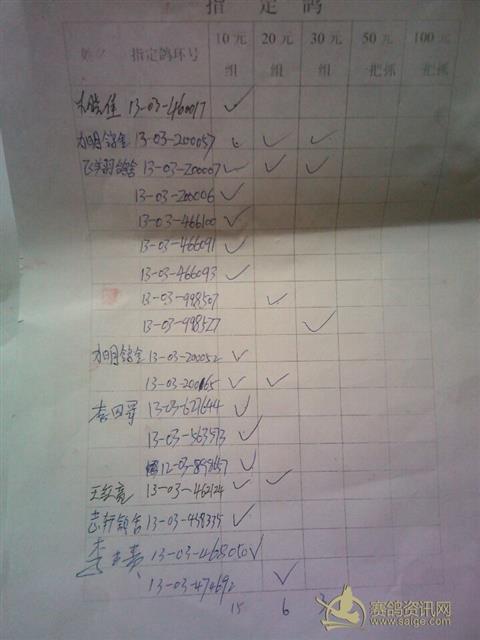 指定鸽
姓名 指定鸽环号 10元组 20元组 30元组 50元一把抓 100元一把抓
13-03-460017 ✓
13-03-200057 ✓ ✓ ✓
13-03-200007 ✓ ✓ ✓
13-03-200006 ✓
13-03-466100 ✓
13-03-466091 ✓
13-03-466093 ✓
13-03-998507 ✓
13-03-998527 ✓
13-03-200052 ✓
13-03-200165 ✓ ✓
李四军 13-03-627644 ✓
13-03-563573 ✓
12-03-899657 ✓
王红亮 13-03-462124 ✓ ✓
志轩鸽舍 13-03-438335 ✓
13-03-465050 ✓
13-03-474692 ✓
15 6 3
赛鸽资讯网
www.saige.com